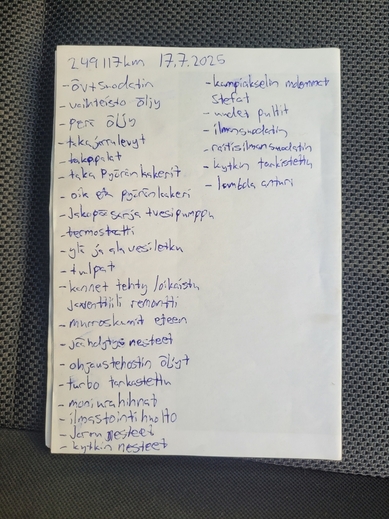 249 117km 17.7.2025
- öv + suodatin
- vaihteisto öljy
- perä öljy
- takajarrulevyt
- takappalat
- taka pyöränlaakerit
- oik etu pyöränlaakeri
- Jakopää sarja + vesipumppu
- termostatti
- ylä ja ala vesiletku
- tulpat
- kannet tehty / oikaistu
ja venttiili remontti
- murroskumit eteen
- jäähdytys nesteet
- ohjaustehostin öljyt
- turbo tarkastettu
- moniurahihnat
- ilmastointihuolto
- Jarru nesteet
- kytkin nesteet
- kampiakselin molemmat
stefat
- uudet pultit
- ilmansuodatin
- raitisilmansuodatin
- kytkin tarkistettu
- lambda anturi